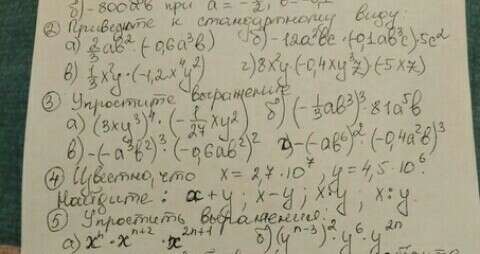 б) -800a²b при a = -½,
② Приведите к стандартному виду:
а) ⅔ab² · (-0,6a³b) б) -12a²bc · (-0,1ab³c) · 5c²
в) ⅓x²y · (-1,2x⁴y²) г) 8x²y · (-0,4xy³z) · (-5xz)
③ Упростите выражение
а) (3xy³)⁴ · (-1/27 xy²) б) (-⅓ab³)³ · 81a⁵b
в) -(-a³b²)³ · (-0,6ab²)² г) -(-ab⁶)² · (-0,4a²b)³
④ Известно, что x = 2,7·10⁷, y = 4,5·10⁶.
Найдите: x+y; x-y; x·y; x:y.
⑤ Упростить выражения:
а) xⁿ · xⁿ⁺² · x²ⁿ⁺¹ б) (yⁿ⁻³)² · y⁶ · y²ⁿ